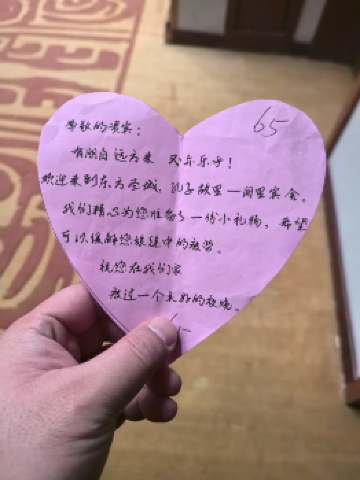 65
尊敬的贵宾：
有朋自远方来 不亦乐乎！
欢迎来到东方圣城，孔子故里—阙里宾舍。
我们精心为您准备了一份小礼物，希望
可以缓解您旅途中的疲劳。
祝您在我们家
度过一个美好的夜晚。